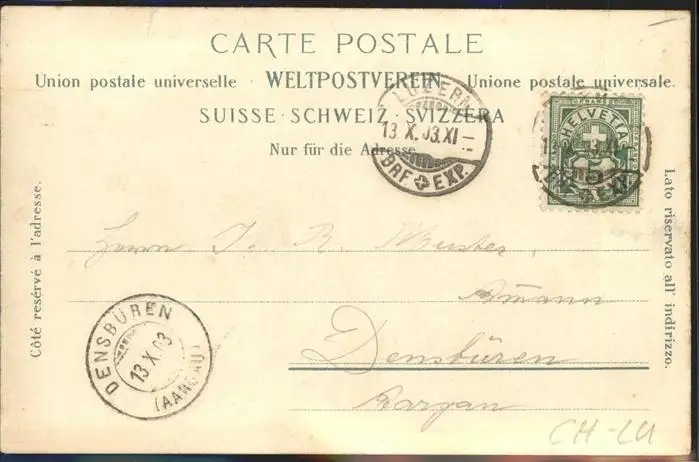 CARTE POSTALE
Union postale universelle · WELTPOSTVEREIN · Unione postale universale.
SUISSE · SCHWEIZ · SVIZZERA
Nur für die Adresse
Côté resérvé à l'adresse.
Lato riservato all' indirizzo.
LUZERN
13.X.03.XI-
BRF EXP.
FRANCO
HELVETIA
5
BRF EXP.
Herrn J. R.
Ammann
Densbüren
Aargau
DENSBÜREN
13.X.03
(AARGAU)
CH-LU